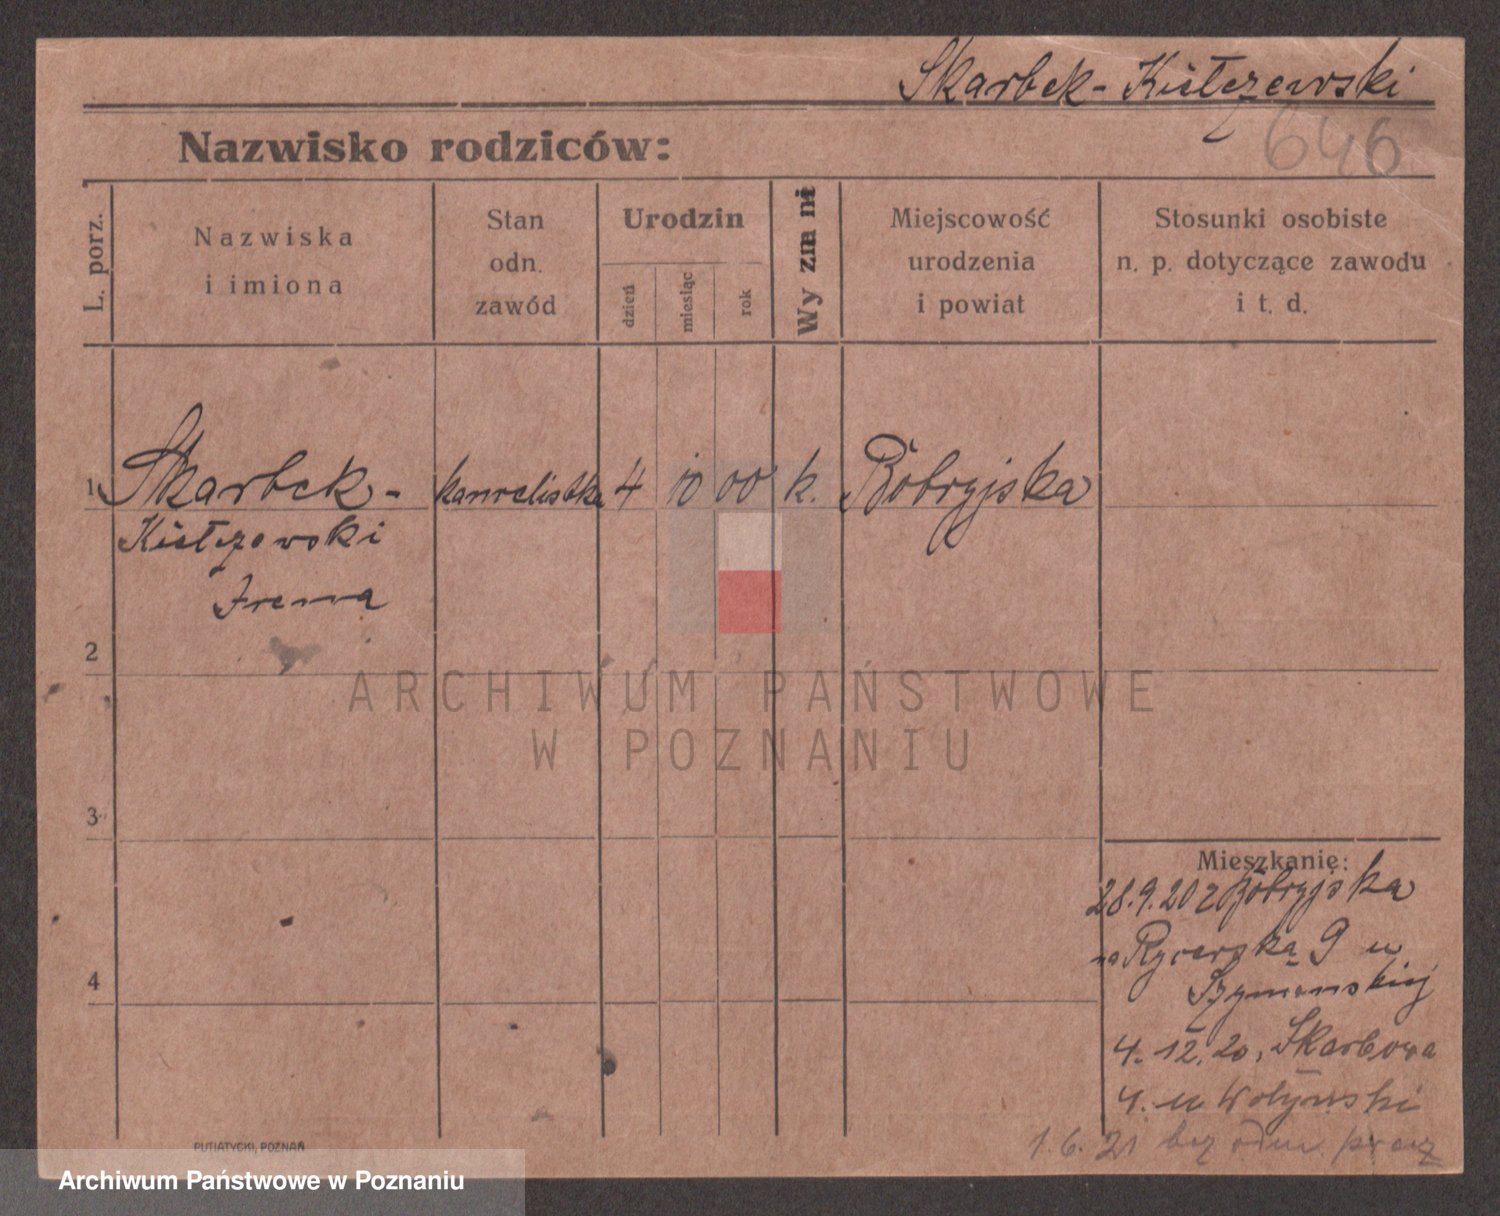 Skarbek-Kiełczewski
Nazwisko rodziców:
646
L. porz.
Nazwiska
i imiona
Stan
odn.
zawód
Urodzin
dzień
miesiąc
rok
Wyznani
Miejscowość
urodzenia
i powiat
Stosunki osobiste
n. p. dotyczące zawodu
i t. d.
1 Skarbek- kancelistka 4 10 00 k. Bobryjska
Kiełczewski
Irena
2
3
4
Mieszkanie:
28.9.20 z Bobryjska
na Rycerską 9 u
Szymanskiej
4.12.20, Skarbowa
4. u Wołyński
1.6.21 bez odm. pracz
PUTIATYCKI, POZNAŃ
ARCHIWUM PAŃSTWOWE
W POZNANIU
Archiwum Państwowe w Poznaniu